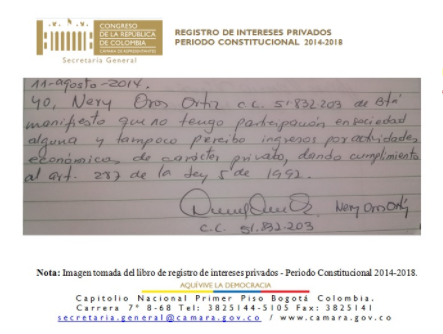 CONGRESO
DE LA REPÚBLICA
DE COLOMBIA
CÁMARA DE REPRESENTANTES
Secretaría General
REGISTRO DE INTERESES PRIVADOS
PERIODO CONSTITUCIONAL 2014-2018
11-agosto-2014.
Yo, Nery Oros Ortiz c.c. 51.832.203 de Btá
manifiesto que no tengo participación en sociedad
alguna y tampoco percibo ingresos por actividades
económicas de carácter privado, dando cumplimiento
al art. 287 de la ley 5ª de 1992.
Nery Oros Ortiz
c.c. 51.832.203
Nota: Imagen tomada del libro de registro de intereses privados - Periodo Constitucional 2014-2018.
AQUÍ VIVE LA DEMOCRACIA
Capitolio Nacional Primer Piso Bogotá Colombia.
Carrera 7ª 8-68 Tel: 3825144-5105 Fax: 3825141
secretaria.general@camara.gov.co / www.camara.gov.co